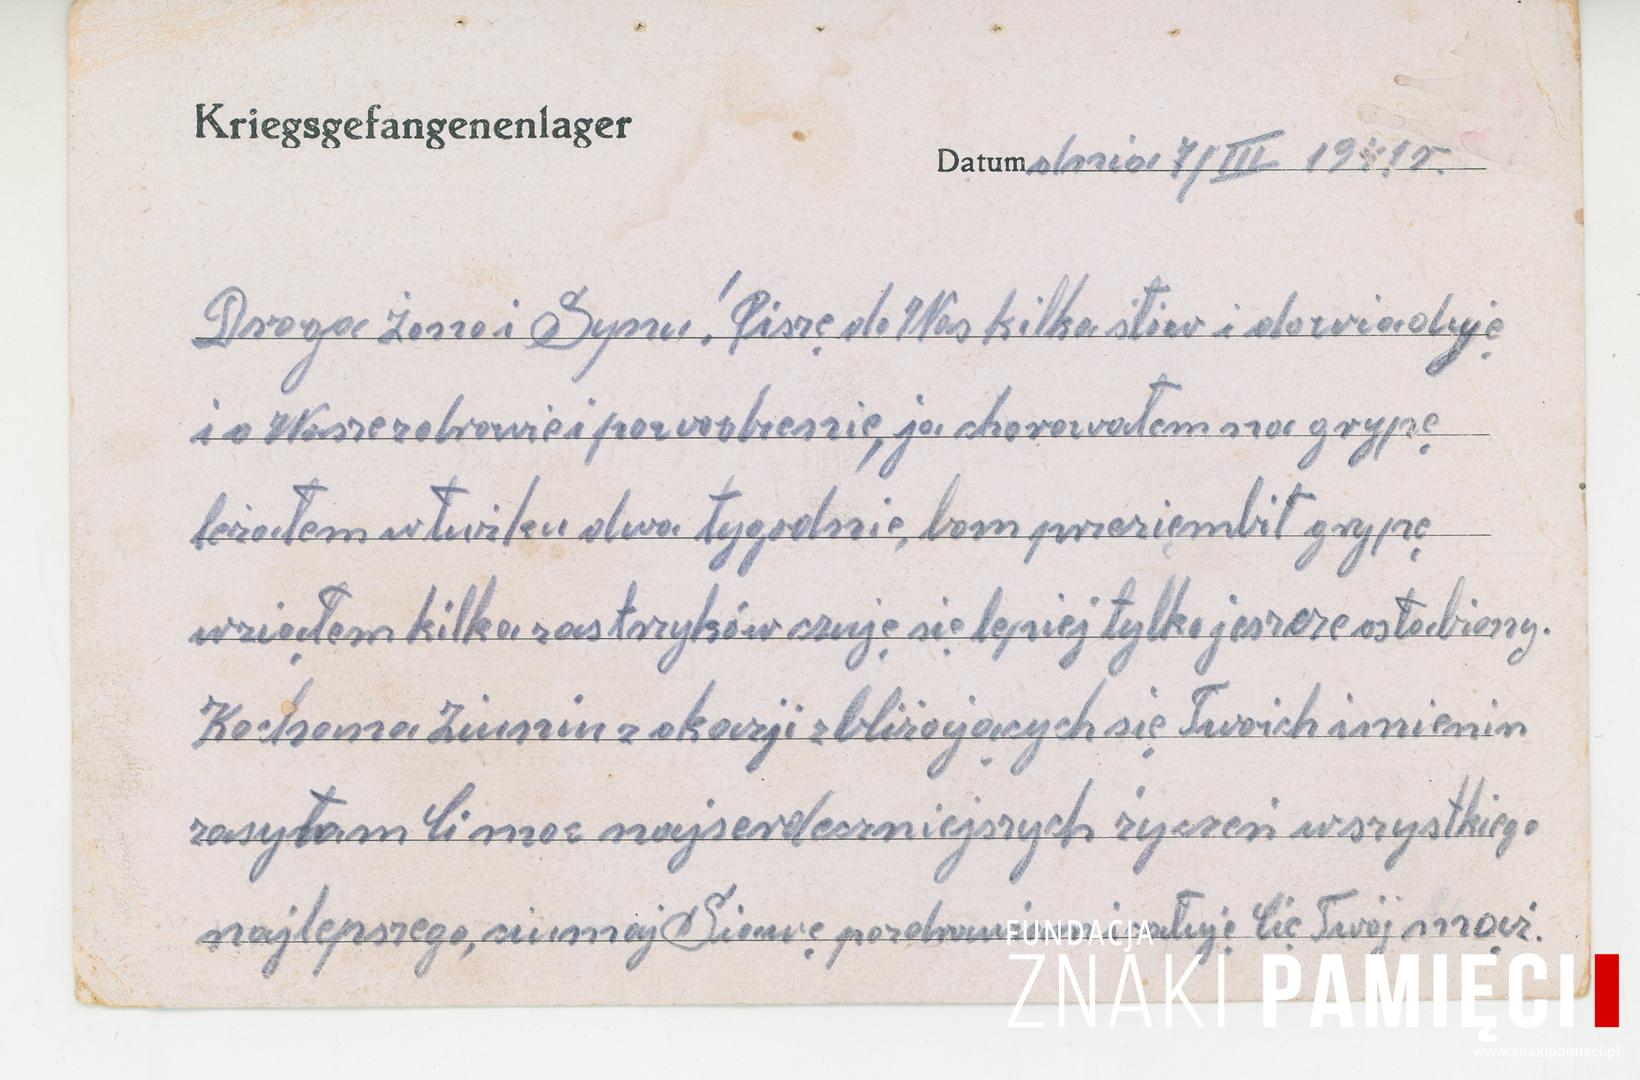 Kriegsgefangenenlager
Datum dnia 7/III 1941r.
Droga żono i Synu! Piszę do Was kilka słów i dowiaduję
i o Wasze zdrowie i powodzenie, ja chorowałem na grypę
leżałem w łużku dwa tygodnie, bom przeziembił grypę
wziąłem kilka zastrzyków czuję się lepiej tylko jeszcze osłabiony.
Kochana Ziuniu z okazji zbliżających się Twoich imienin
zasyłam Ci moc najserdeczniejszych życzeń wszystkiego
najlepszego, siumaj Sławę Cię Twój mąż.
FUNDACJA
ZNAKI PAMIĘCI
www.znakipamieci.pl